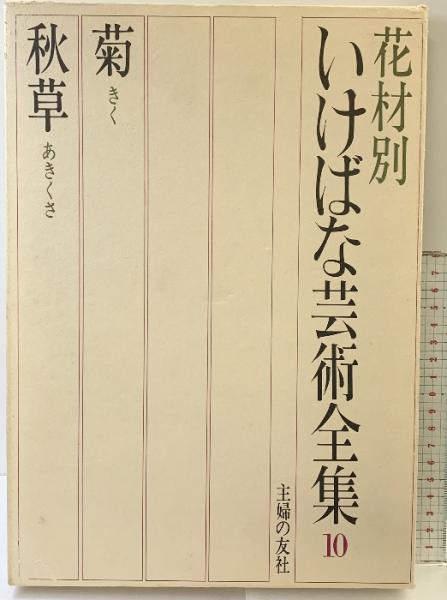 花材別
いけばな芸術全集10
主婦の友社
菊きく
秋草あきくさ